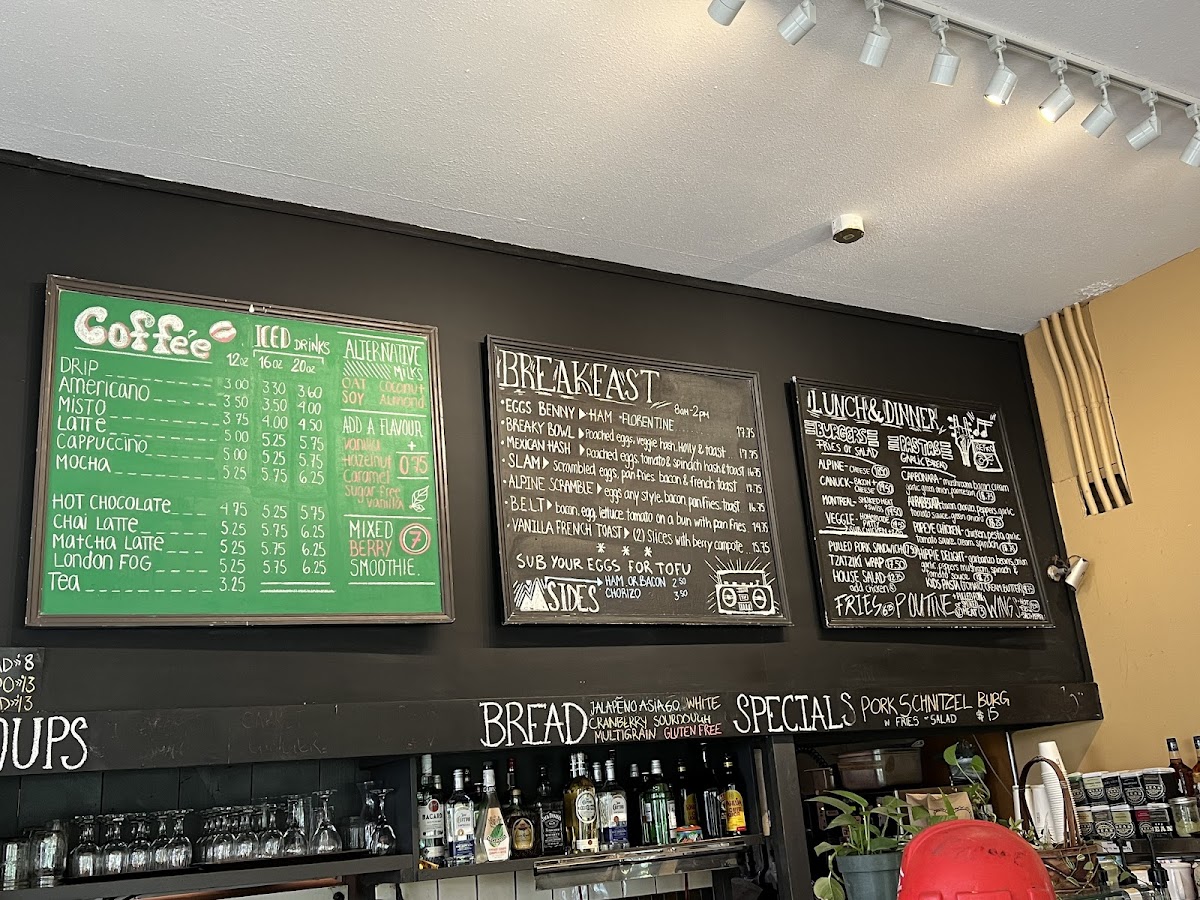 Coffee
ICED DRINKS
12oz 16oz 20oz
DRIP 3.00 3.30 3.60
Americano 3.50 3.50 4.00
MISTO 3.75 4.00 4.50
Latte 5.00 5.25 5.75
Cappuccino 5.00 5.25 5.75
MOCHA 5.25 5.75 6.25
HOT CHOCOLATE 4.75 5.25 5.75
CHAI LATTE 5.25 5.75 6.25
MATCHA LATTE 5.25 5.75 6.25
LONDON FOG 5.25 5.75 6.25
Tea 3.25
ALTERNATIVE
MILKS
OAT Coconut
SOY Almond
ADD A FLAVOUR
Vanilla +
Hazelnut 0.75
Caramel
Sugar-free
vanilla
MIXED
BERRY 7
SMOOTHIE.
BREAKFAST 8am-2pm
• EGGS BENNY ▶ HAM - FLORENTINE 17.75
• BREAKY BOWL ▶ poached eggs, veggie hash, Holly & toast 17.75
• MEXICAN HASH ▶ poached eggs, tomato & spinach hash & toast 16.75
• SLAM ▶ scrambled eggs, pan fries, bacon & french toast 17.75
• ALPINE SCRAMBLE ▶ eggs any style, bacon, pan fries, toast 16.75
• BELT ▶ bacon, egg, lettuce, tomato on a bun with pan fries 19.75
• VANILLA FRENCH TOAST ▶ (2) slices with berry compote 15.75
SUB YOUR EGGS FOR TOFU
SIDES HAM OR BACON 2.50
CHORIZO 3.50
LUNCH & DINNER
BURGERS
FRIES or SALAD
ALPINE - CHEESE
CANUCK - BACON +
CHEESE
MONTREAL - SMOKED MEAT
+ SWISS
VEGGIE
PULLED PORK SANDWICH
TZATZIKI WRAP 17.50
HOUSE SALAD
add chicken
PASTAS
GARLIC BREAD
CARBONARA - mushroom, bacon, cream
garlic, green onion, parmesan 18.75
tomato sauce, green onion
POPEYE - chicken, pesto, garlic
tomato sauce, cream, spinach
HIPPIE DELIGHT
garlic, peppers, mushroom, spinach &
tomato sauce
KIDS PASTA
FRIES POUTINE WINGS
AD $8
PO $13
D $13
OUPS
BREAD JALAPEÑO ASIAGO WHITE
CRANBERRY SOURDOUGH
MULTIGRAIN GLUTEN FREE
SPECIALS PORK SCHNITZEL BURG
w FRIES or SALAD $15
BACARDI